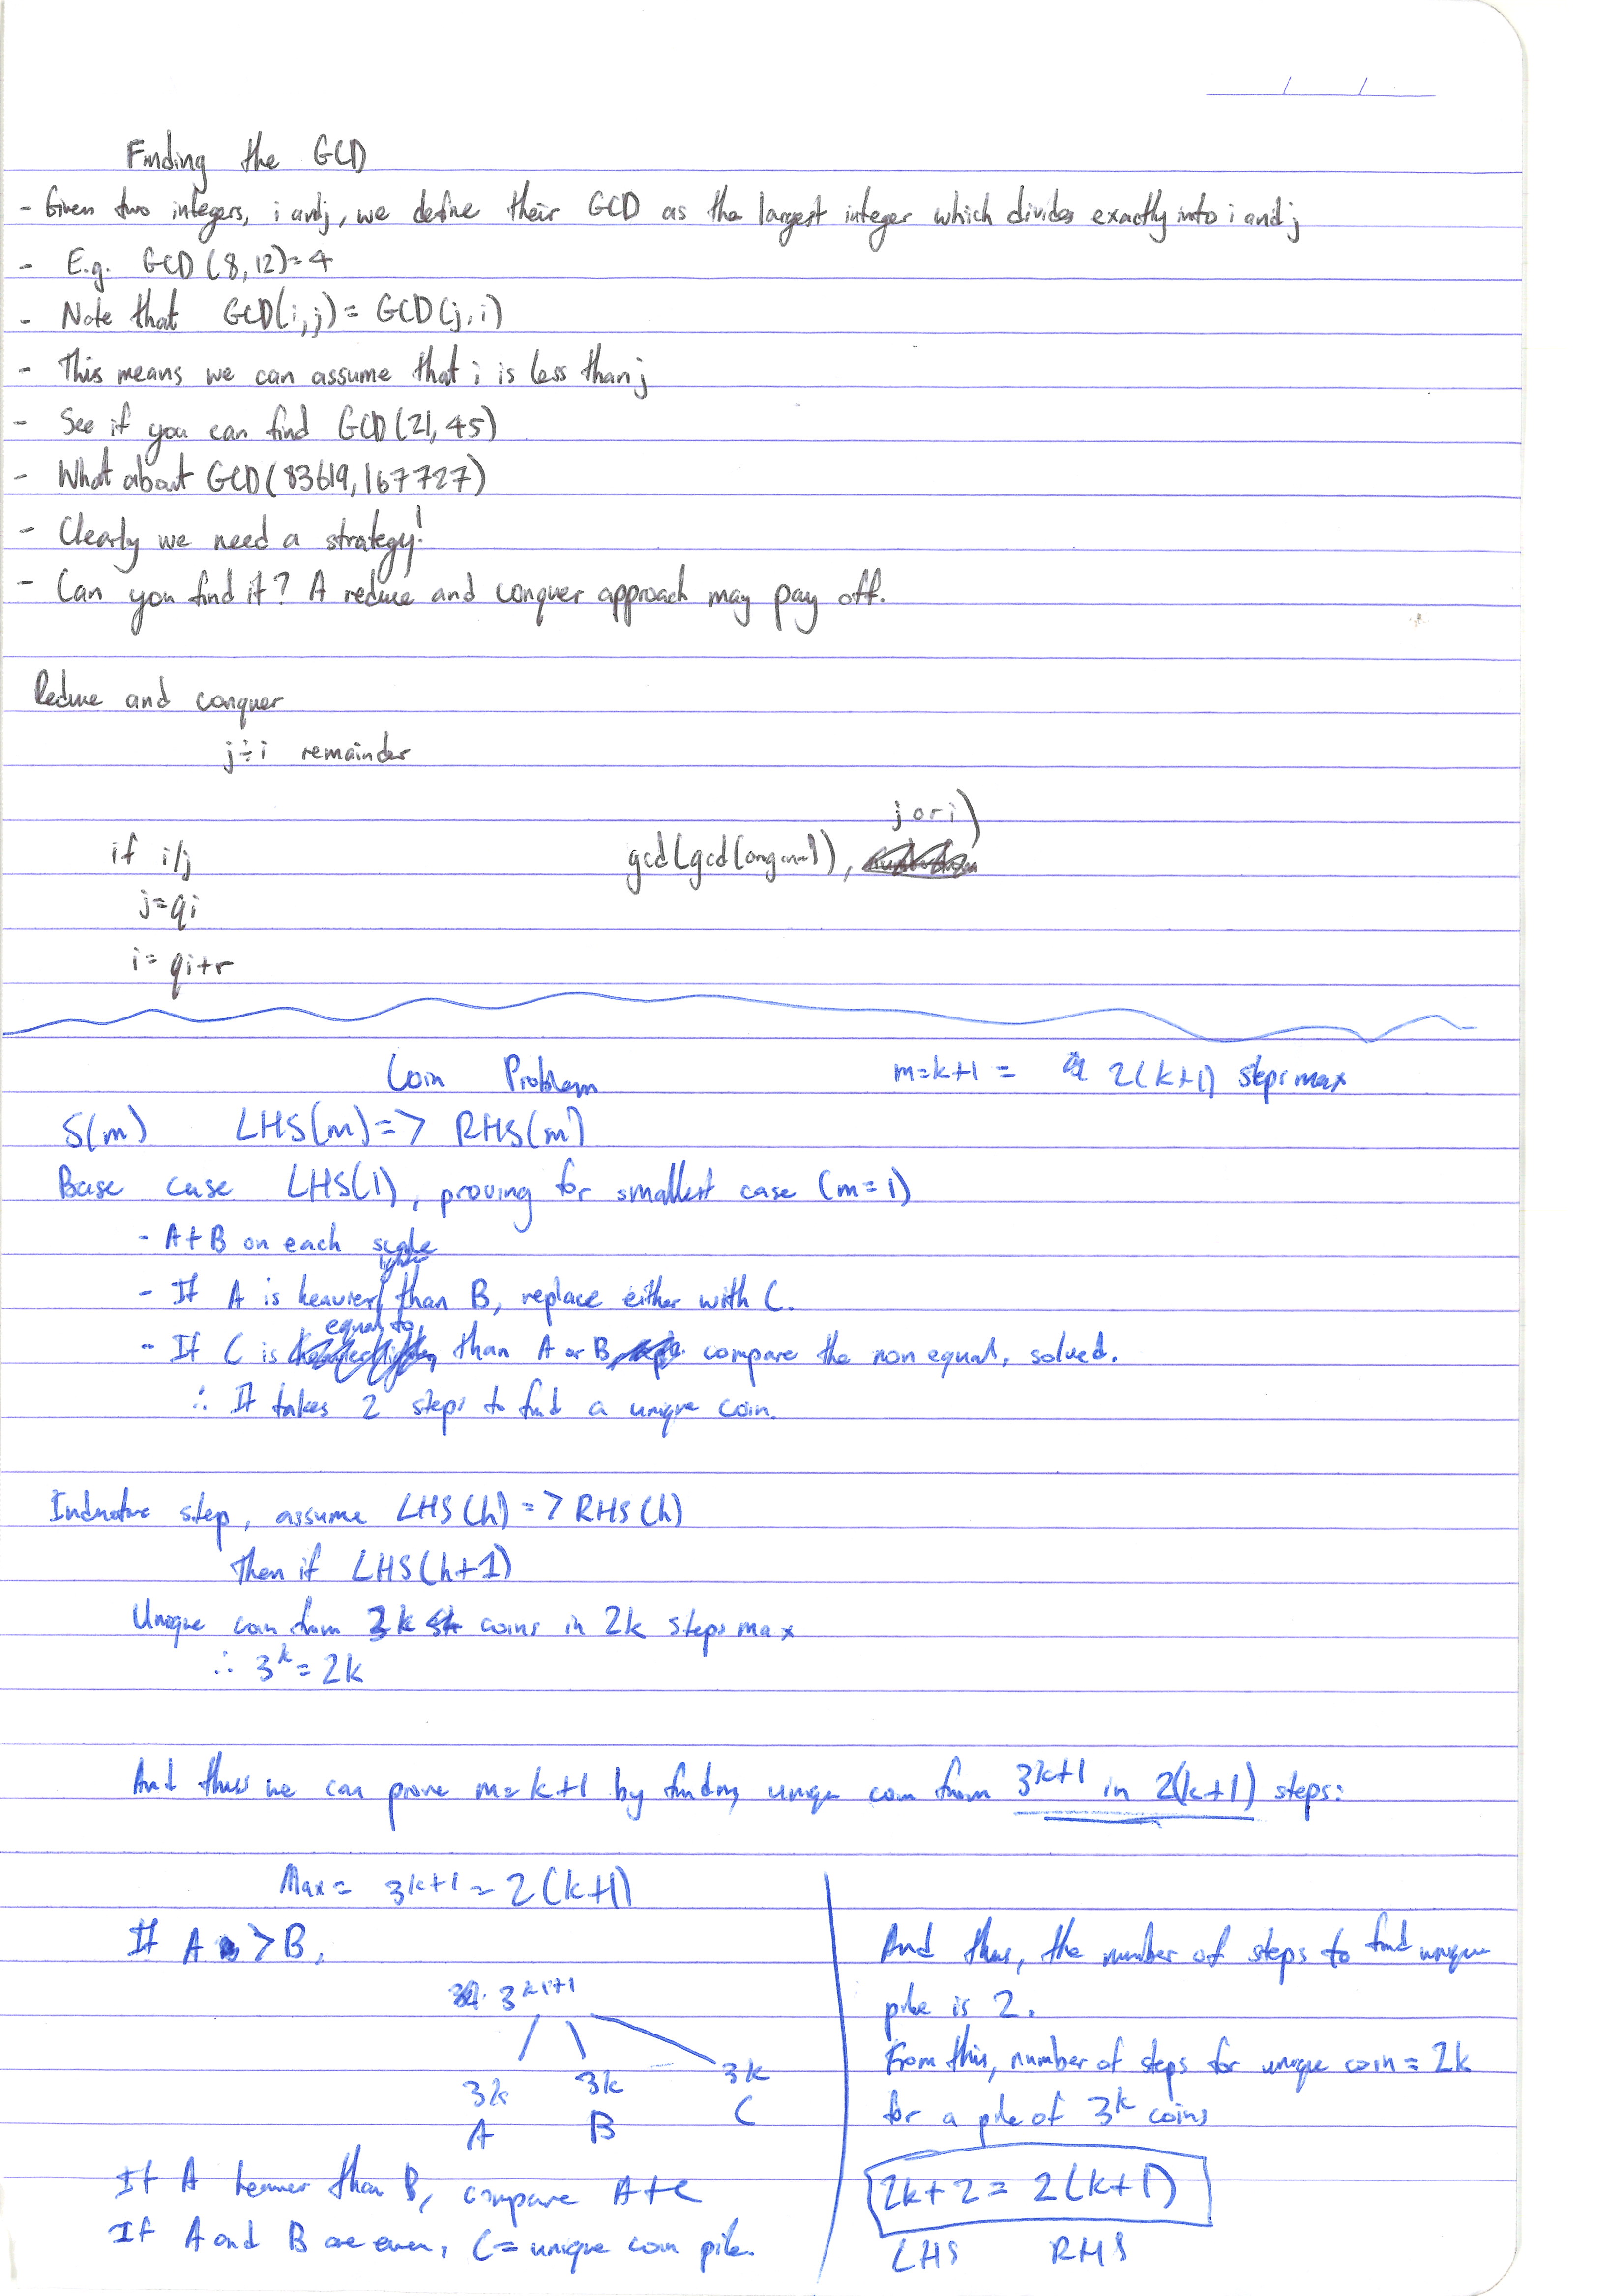 Finding the GCD
- Given two integers, i and j, we define their GCD as the largest integer which divides exactly into i and j
- E.g. GCD(8,12)=4
- Note that GCD(i,j) = GCD(j,i)
- This means we can assume that i is less than j
- See if you can find GCD(21,45)
- What about GCD(83619,167727)
- Clearly we need a strategy!
- Can you find it? A reduce and conquer approach may pay off.
Reduce and conquer
j÷i remainder
j or i)
if i/j gcd(gcd(original),
j=qi
i=qi+r
Coin Problem m=k+1 = 2(k+1) steps max
S(m) LHS(m)=> RHS(m)
Base case LHS(1), proving for smallest case (m=1)
- A+B on each scale
lighter
- If A is heavier/ than B, replace either with C.
equal to
- If C is than A or B, compare the non equal, solved.
∴ It takes 2 steps to find a unique coin.
Inductive step, assume LHS(h)=>RHS(h)
Then if LHS(h+1)
Unique coin from 3k coins in 2k steps max
∴ 3^k = 2k
And thus we can prove m=k+1 by finding unique coin from 3^k+1 in 2(k+1) steps:
Max = 3^k+1 = 2(k+1)
If A > B,
3^k+1
3k 3k 3k
A B C
If A heavier than B, compare A+C
If A and B are even, C = unique coin pile.
And thus, the number of steps to find unique
pile is 2.
From this, number of steps for unique coin = 2k
for a pile of 3^k coins
2k+2 = 2(k+1)
LHS RHS